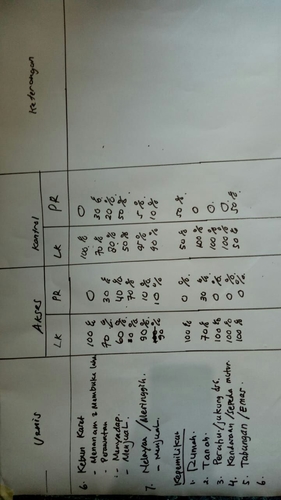 Jenis Akses Kontrol Keterangan
LK PR LK PR
6. Kebun Karet
- Menanam & Membuka 100 % 0 100 % 0
- Perawatan 30 % 70 % 30 %
- Menyadap. 60 % 40 % 80 % 20 %
- Menjual. 70 % 50 % 50 %
7. Nelayan / 90 % 10 % 95 % 5 %
- Menjual. 90 % 10 % 90 % 10 %
Kepemilikan
1. Rumah. 100 % 0 % 50 % 50 %
2. Tanah. 70 % 30 % 100 % 0
3. Perahu / jukung 100 % 0 % 100 % 0
4. Kendaraan / sepeda motor. 100 % 0 % 100 % 0
5. Tabungan / Emas. 100 % 0 % 50 % 50 %
6.